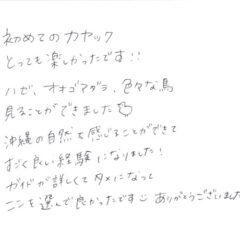 初めてのカヤック
とっても楽しかったです!!
ハゼ、オオゴマダラ、色々な鳥
見ることができました
沖縄の自然を感じることができて
すごく良い経験になりました!
ガイドが詳しくてタメになって
ここを選んで良かったです ありがとうございました